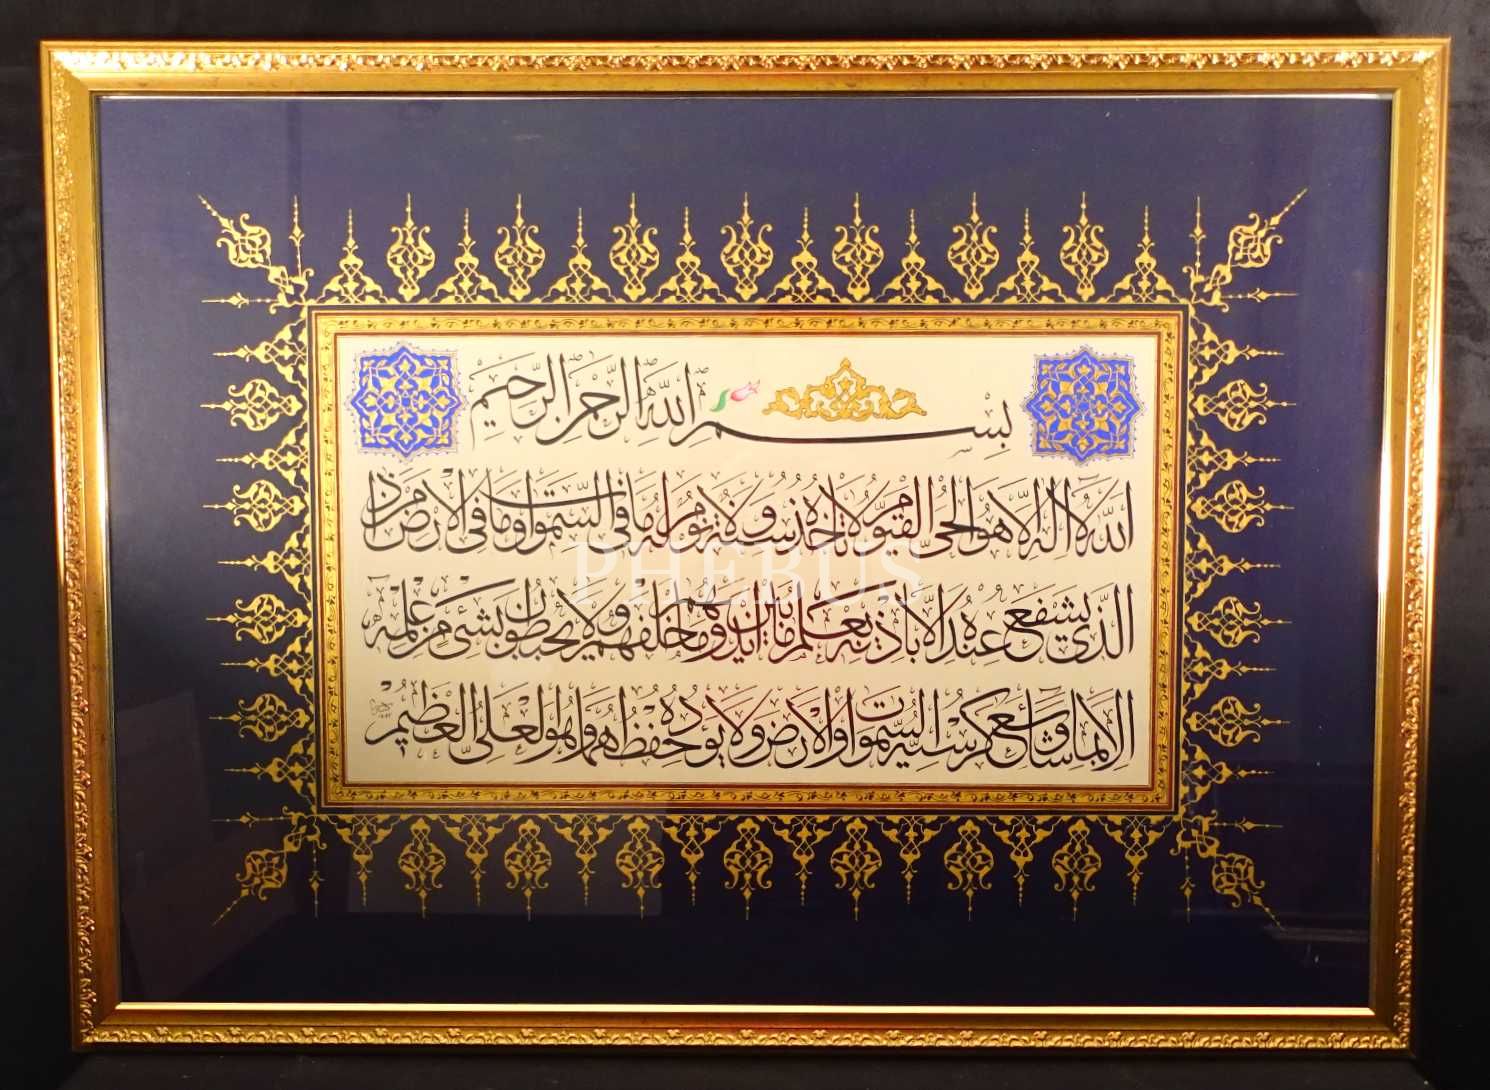 بِسْمِ اللّٰهِ الرَّحْمٰنِ الرَّحِيمِ
اَللّٰهُ لَا اِلٰهَ اِلَّا هُوَ الْحَيُّ الْقَيُّومُ لَا تَأْخُذُهُ سِنَةٌ وَلَا نَوْمٌ لَهُ مَا فِي السَّمٰوَاتِ وَمَا فِي الْاَرْضِ مَنْ ذَا
الَّذِي يَشْفَعُ عِنْدَهُ اِلَّا بِاِذْنِهِ يَعْلَمُ مَا بَيْنَ اَيْدِيهِمْ وَمَا خَلْفَهُمْ وَلَا يُحِيطُونَ بِشَيْءٍ مِنْ عِلْمِهِ
اِلَّا بِمَا شَاءَ وَسِعَ كُرْسِيُّهُ السَّمٰوَاتِ وَالْاَرْضَ وَلَا يَؤُدُهُ حِفْظُهُمَا وَهُوَ الْعَلِيُّ الْعَظِيمُ
PHEBUS